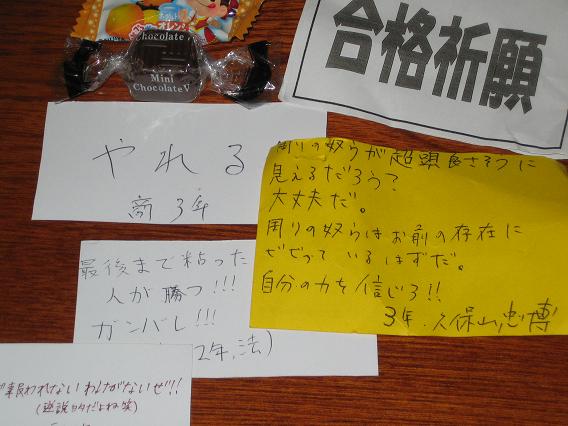 オレンジ
Chocolate
Mini
Chocolate V
合格祈願
やれる
商3年
周りの奴らが超頭良さそうに
見えるだろう?
大丈夫だ。
周りの奴らはお前の存在に
ビビっているはずだ。
自分の力を信じろ!!
3年.久保山忠博
最後まで粘った
人が勝つ!!!
ガンバレ!!!
2年,法)
報われないわけがないぜ!!
(逆説的だよね笑)